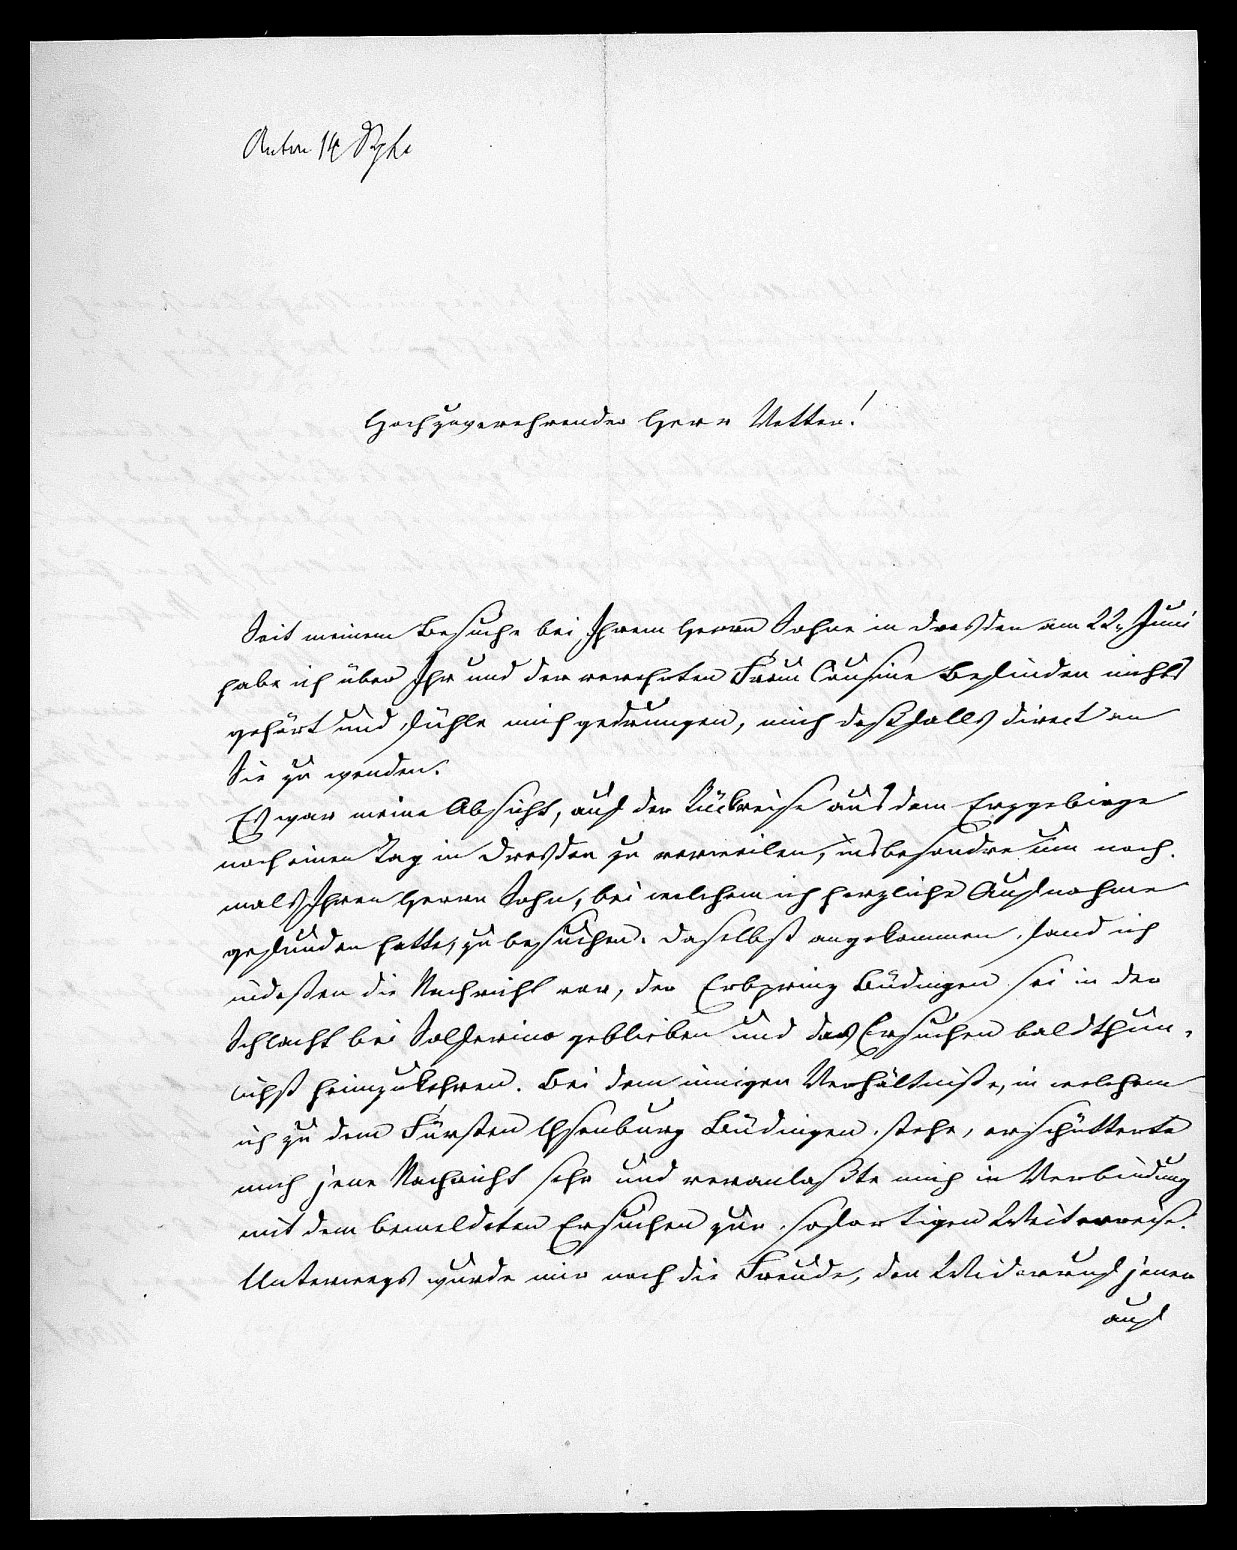 Hochzuverehrender Herr Vetter!
Seit meinem Besuche bei Ihrem Herrn Sohne in Dresden am 22. Juni
habe ich über Ihr und der verehrten Frau Cousine Befinden nichts
gehört und fühle mich gedrungen, mich deßfalls direct an
Sie zu wenden.
Es war meine Absicht, auf der Rückreise aus dem Erzgebirge
noch einen Tag in Dresden zu verweilen, insbesondre um noch-
mals Ihren Herrn Sohn, bei welchem ich herzliche Aufnahme
gefunden hatte, zu besuchen. Daselbst angekommen fand ich
indeßen die Nachricht vor, der Erbprinz Büdingen sei in der
Schlacht bei Solferino geblieben und das Ersuchen baldthun-
lichst heimzukehren. Bei dem innigen Verhältniße, in welchem
ich zu dem Fürsten Ysenburg Büdingen stehe, erschütterte
mich jene Nachricht sehr und veranlaßte mich in Verbindung
mit dem bemeldeten Ersuchen zur sofortigen Weiterreise.
Unterwegs wurde mir noch die Freude, den Widerruf jener
auf